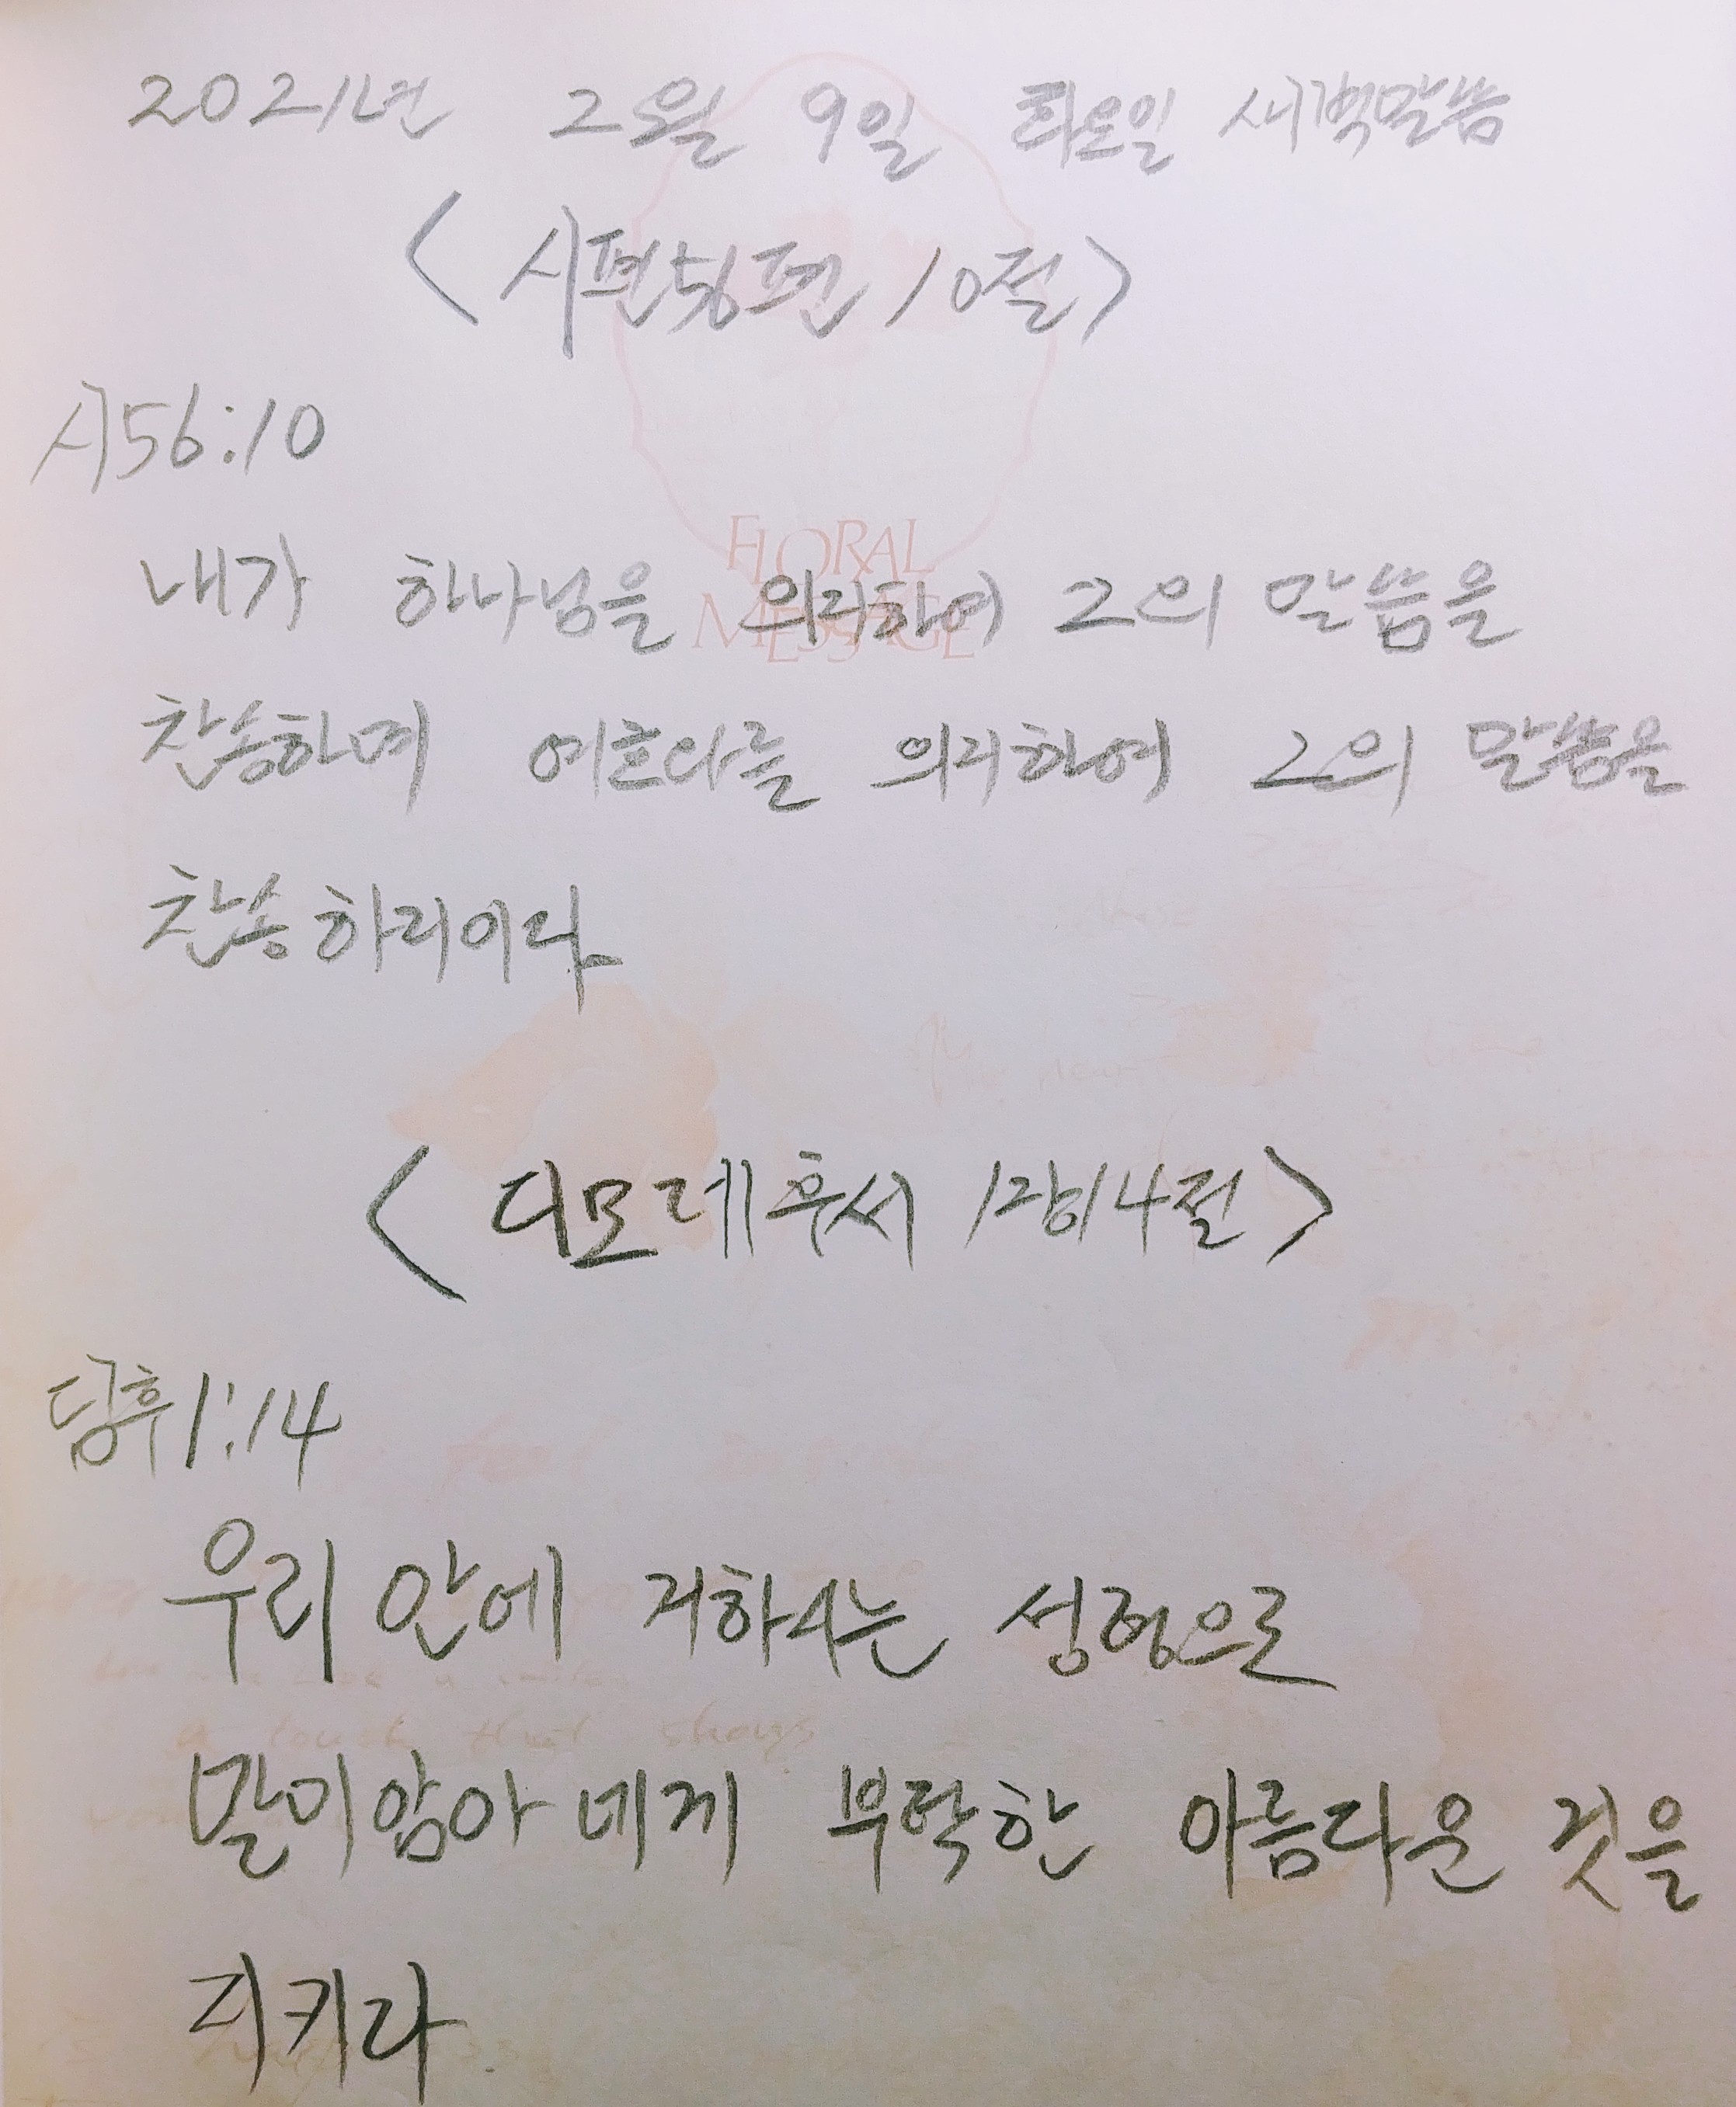 2021년 2월 9일 화요일 새벽말씀
<시편56편 10절>
시56:10
FLORAL
MESSAGE
내가 하나님을 의지하여 그의 말씀을
찬송하며 여호와를 의지하여 그의 말씀을
찬송하리이다
<디모데후서 1장14절>
딤후1:14
우리 안에 거하시는 성령으로
a touch that
말미암아 네게 부탁한 아름다운 것을
지키라